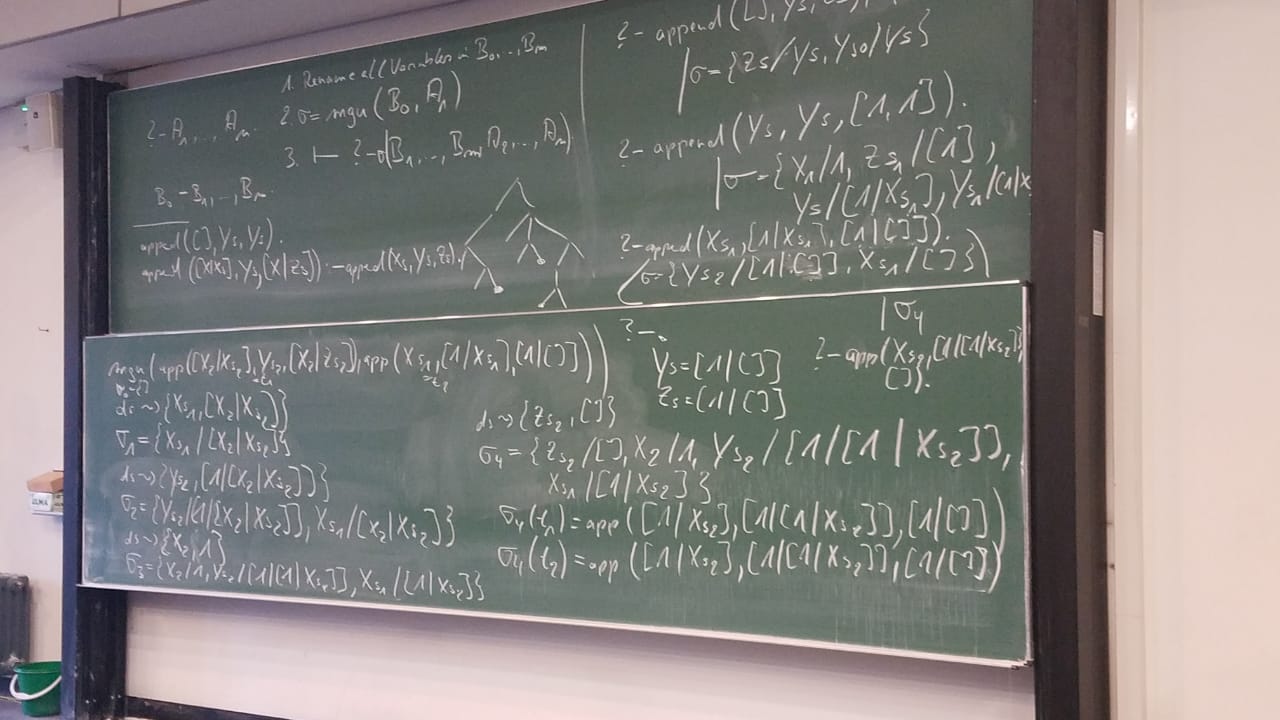 1. Rename all Variables in B₀,...,Bₘ
?- A₁,..., Aₙ.
2. σ = mgu (B₀, A₁)
3. ⊢ ?-σ(B₁,..., Bₘ, A₂,..., Aₙ).
B₀ :- B₁,..., Bₘ.
append([], Ys, Ys).
append([X|Xs], Ys, [X|Zs]) :- append(Xs, Ys, Zs).
?- append([], Ys,
σ = {Zs/Ys, Ys₀/Ys}
?- append(Ys, Ys, [1,1]).
σ = {X₁/1, Zs₁/[1],
Ys/[1|Xs₁], Ys₁/[1|X
?- append(Xs₁, [1|Xs₁], [1|[]]).
σ = {Ys₂/[1|[]], Xs₁/[]}
mgu(app([X₂|Xs₂], Ys₂, [X₂|Zs₂]), app(Xs₁, [1|Xs₁], [1|[]]))
=t₁ =t₂
σ₀={}
ds ⇝ {Xs₁, [X₂|Xs₂]}
σ₁ = {Xs₁/[X₂|Xs₂]}
ds ⇝ {Ys₂, [1|[X₂|Xs₂]]}
σ₂ = {Ys₂/[1|[X₂|Xs₂]], Xs₁/[X₂|Xs₂]}
ds ⇝ {X₂, 1}
σ₃ = {X₂/1, Ys₂/[1|[1|Xs₂]], Xs₁/[1|Xs₂]}
?-.
Ys = [1|[]]
Zs = [1|[]]
σ₄
?- app(Xs₂, [1|[1|Xs₂]],
[]).
ds ⇝ {Zs₂, []}
σ₄ = {Zs₂/[], X₂/1, Ys₂/[1/[1|Xs₂]],
Xs₁/[1|Xs₂]}
σ₄(t₁) = app([1|Xs₂], [1|[1|Xs₂]], [1|[]])
σ₄(t₂) = app([1|Xs₂], [1|[1|Xs₂]], [1|[]])